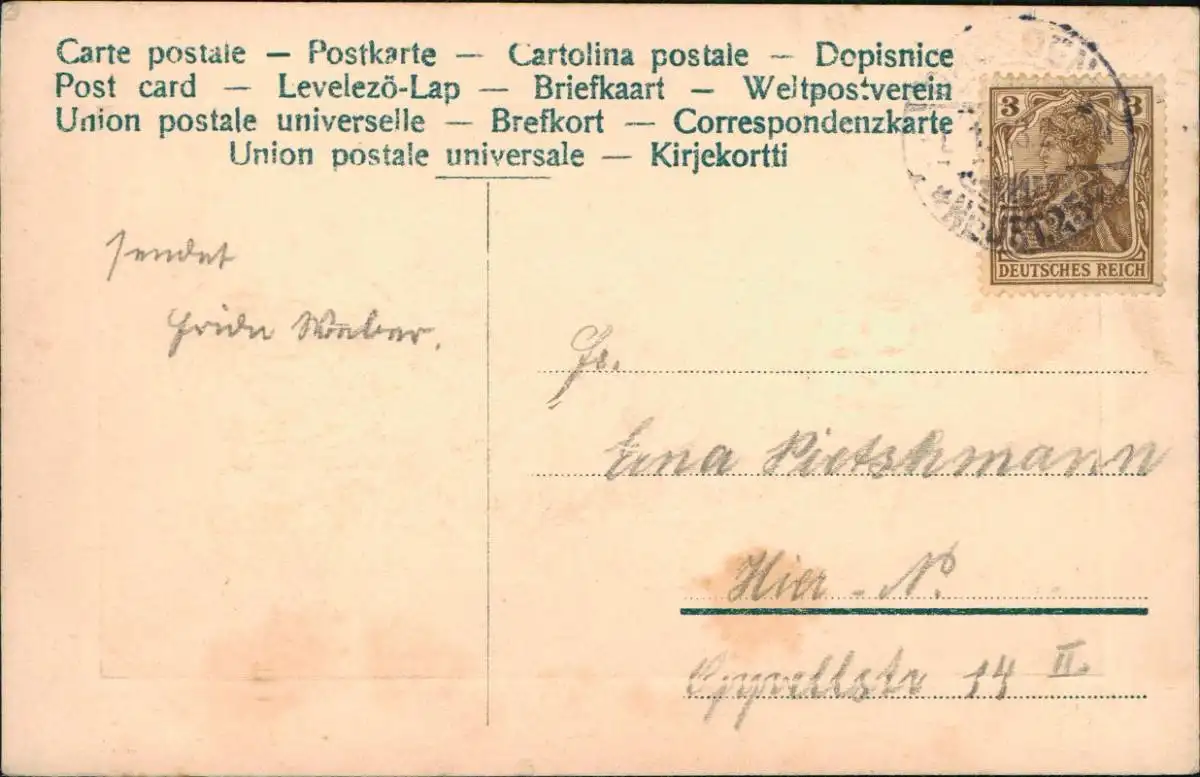 Carte postale — Postkarte — Cartolina postale — Dopisnice
Post card — Levelezö-Lap — Briefkaart — Weltpostverein
Union postale universelle — Brefkort — Correspondenzkarte
Union postale universale — Kirjekortti
3 3
DEUTSCHES REICH
sendet
Frida Weber.
Fr.
Erna Pietshmann
Hier - N.
Oppellstr 14 II.